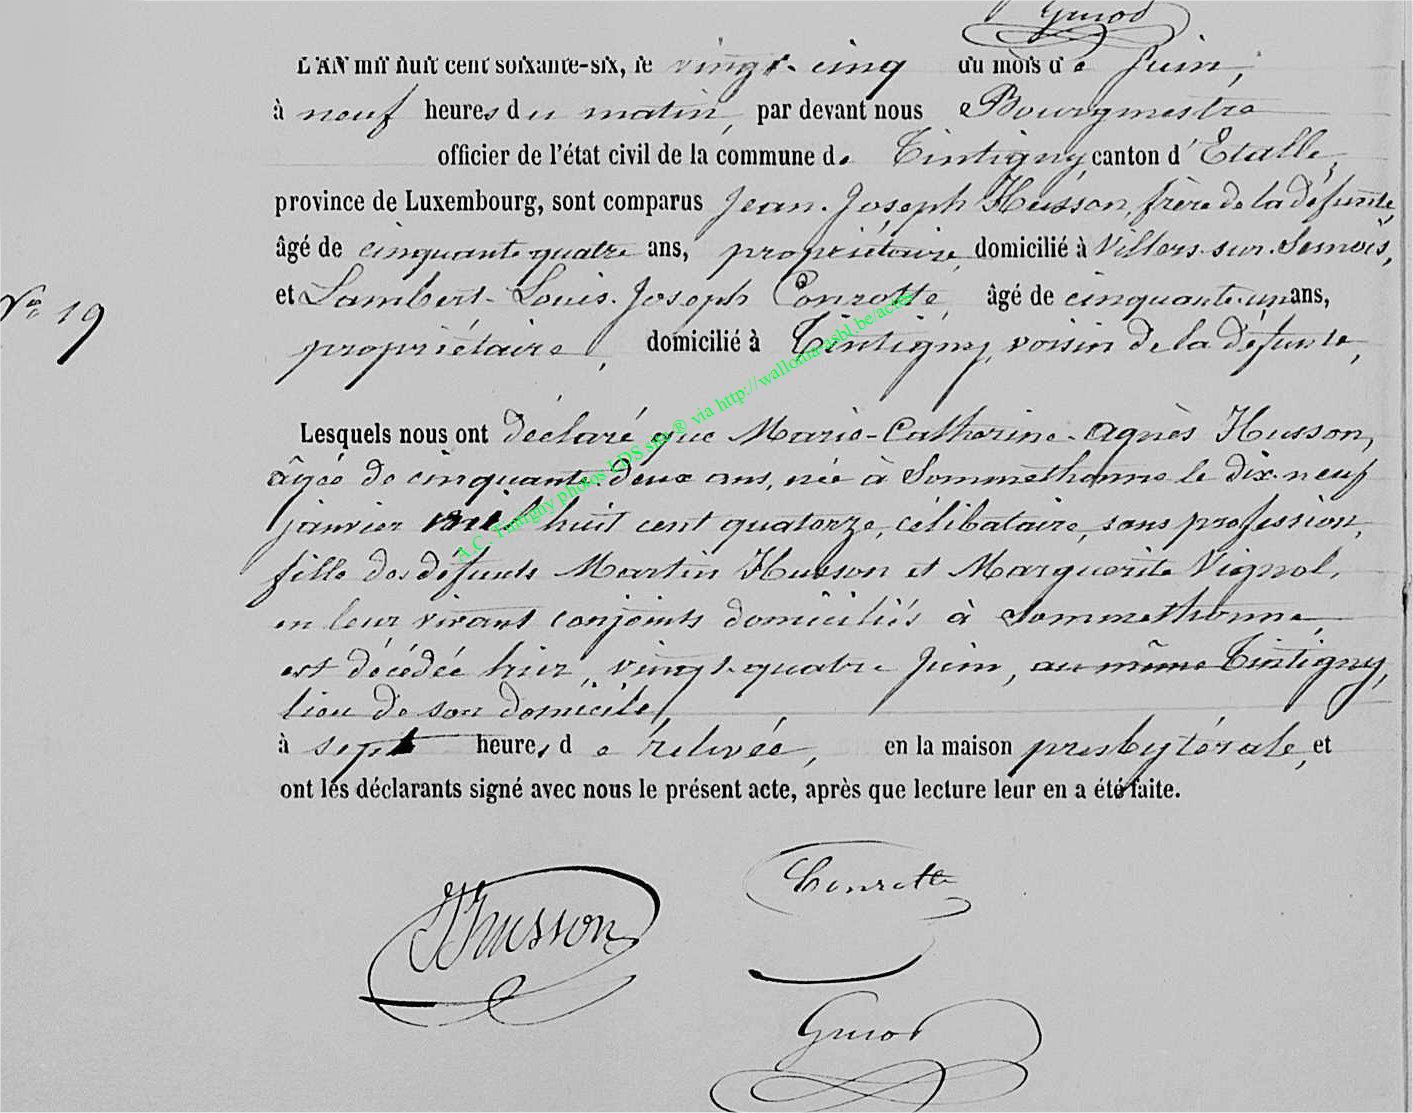 Guiod
L'AN mil huit cent soixante-six, le vingt-cinq du mois de Juin,
à neuf heures du matin, par devant nous Bourgmestre
officier de l'état civil de la commune de Tintigny, canton d'Etalle,
province de Luxembourg, sont comparus Jean-Joseph Husson, frère de la défunte,
âgé de cinquante quatre ans, propriétaire, domicilié à Villers-sur-Semois,
et Lambert-Louis-Joseph Conrotte, âgé de cinquante-un ans,
N° 19
propriétaire, domicilié à Tintigny, voisin de la défunte,
Lesquels nous ont déclaré que Marie-Catherine-Agnès Husson,
âgée de cinquante-deux ans, née à Sommethonne le dix-neuf
janvier mil huit cent quatorze, célibataire, sans profession,
fille des défunts Martin Husson et Marguerite Vignol,
en leur vivant conjoints domiciliés à Sommethonne,
est décédée hier, vingt-quatre Juin, au même Tintigny,
lieu de son domicile,
à sept heures de relevée, en la maison presbytérale, et
ont les déclarants signé avec nous le présent acte, après que lecture leur en a été faite.
Husson
Conrotte
Guiod
A.C. Tintigny photos LDS sur ® via http://wallonia-asbl.be/actes